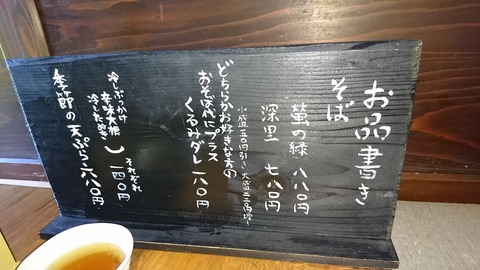 お品書き
そば
蛍の緑 八八〇円
深里 七八〇円
小盛五〇円引き 大盛三三〇円増し
どちらかお好きな方の
おそば代にプラス
くるみダレ 一八〇円
冷しぶっかけ
辛味大根
冷したぬき
それぞれ
一四〇円
季節の天ぷら 六八〇円